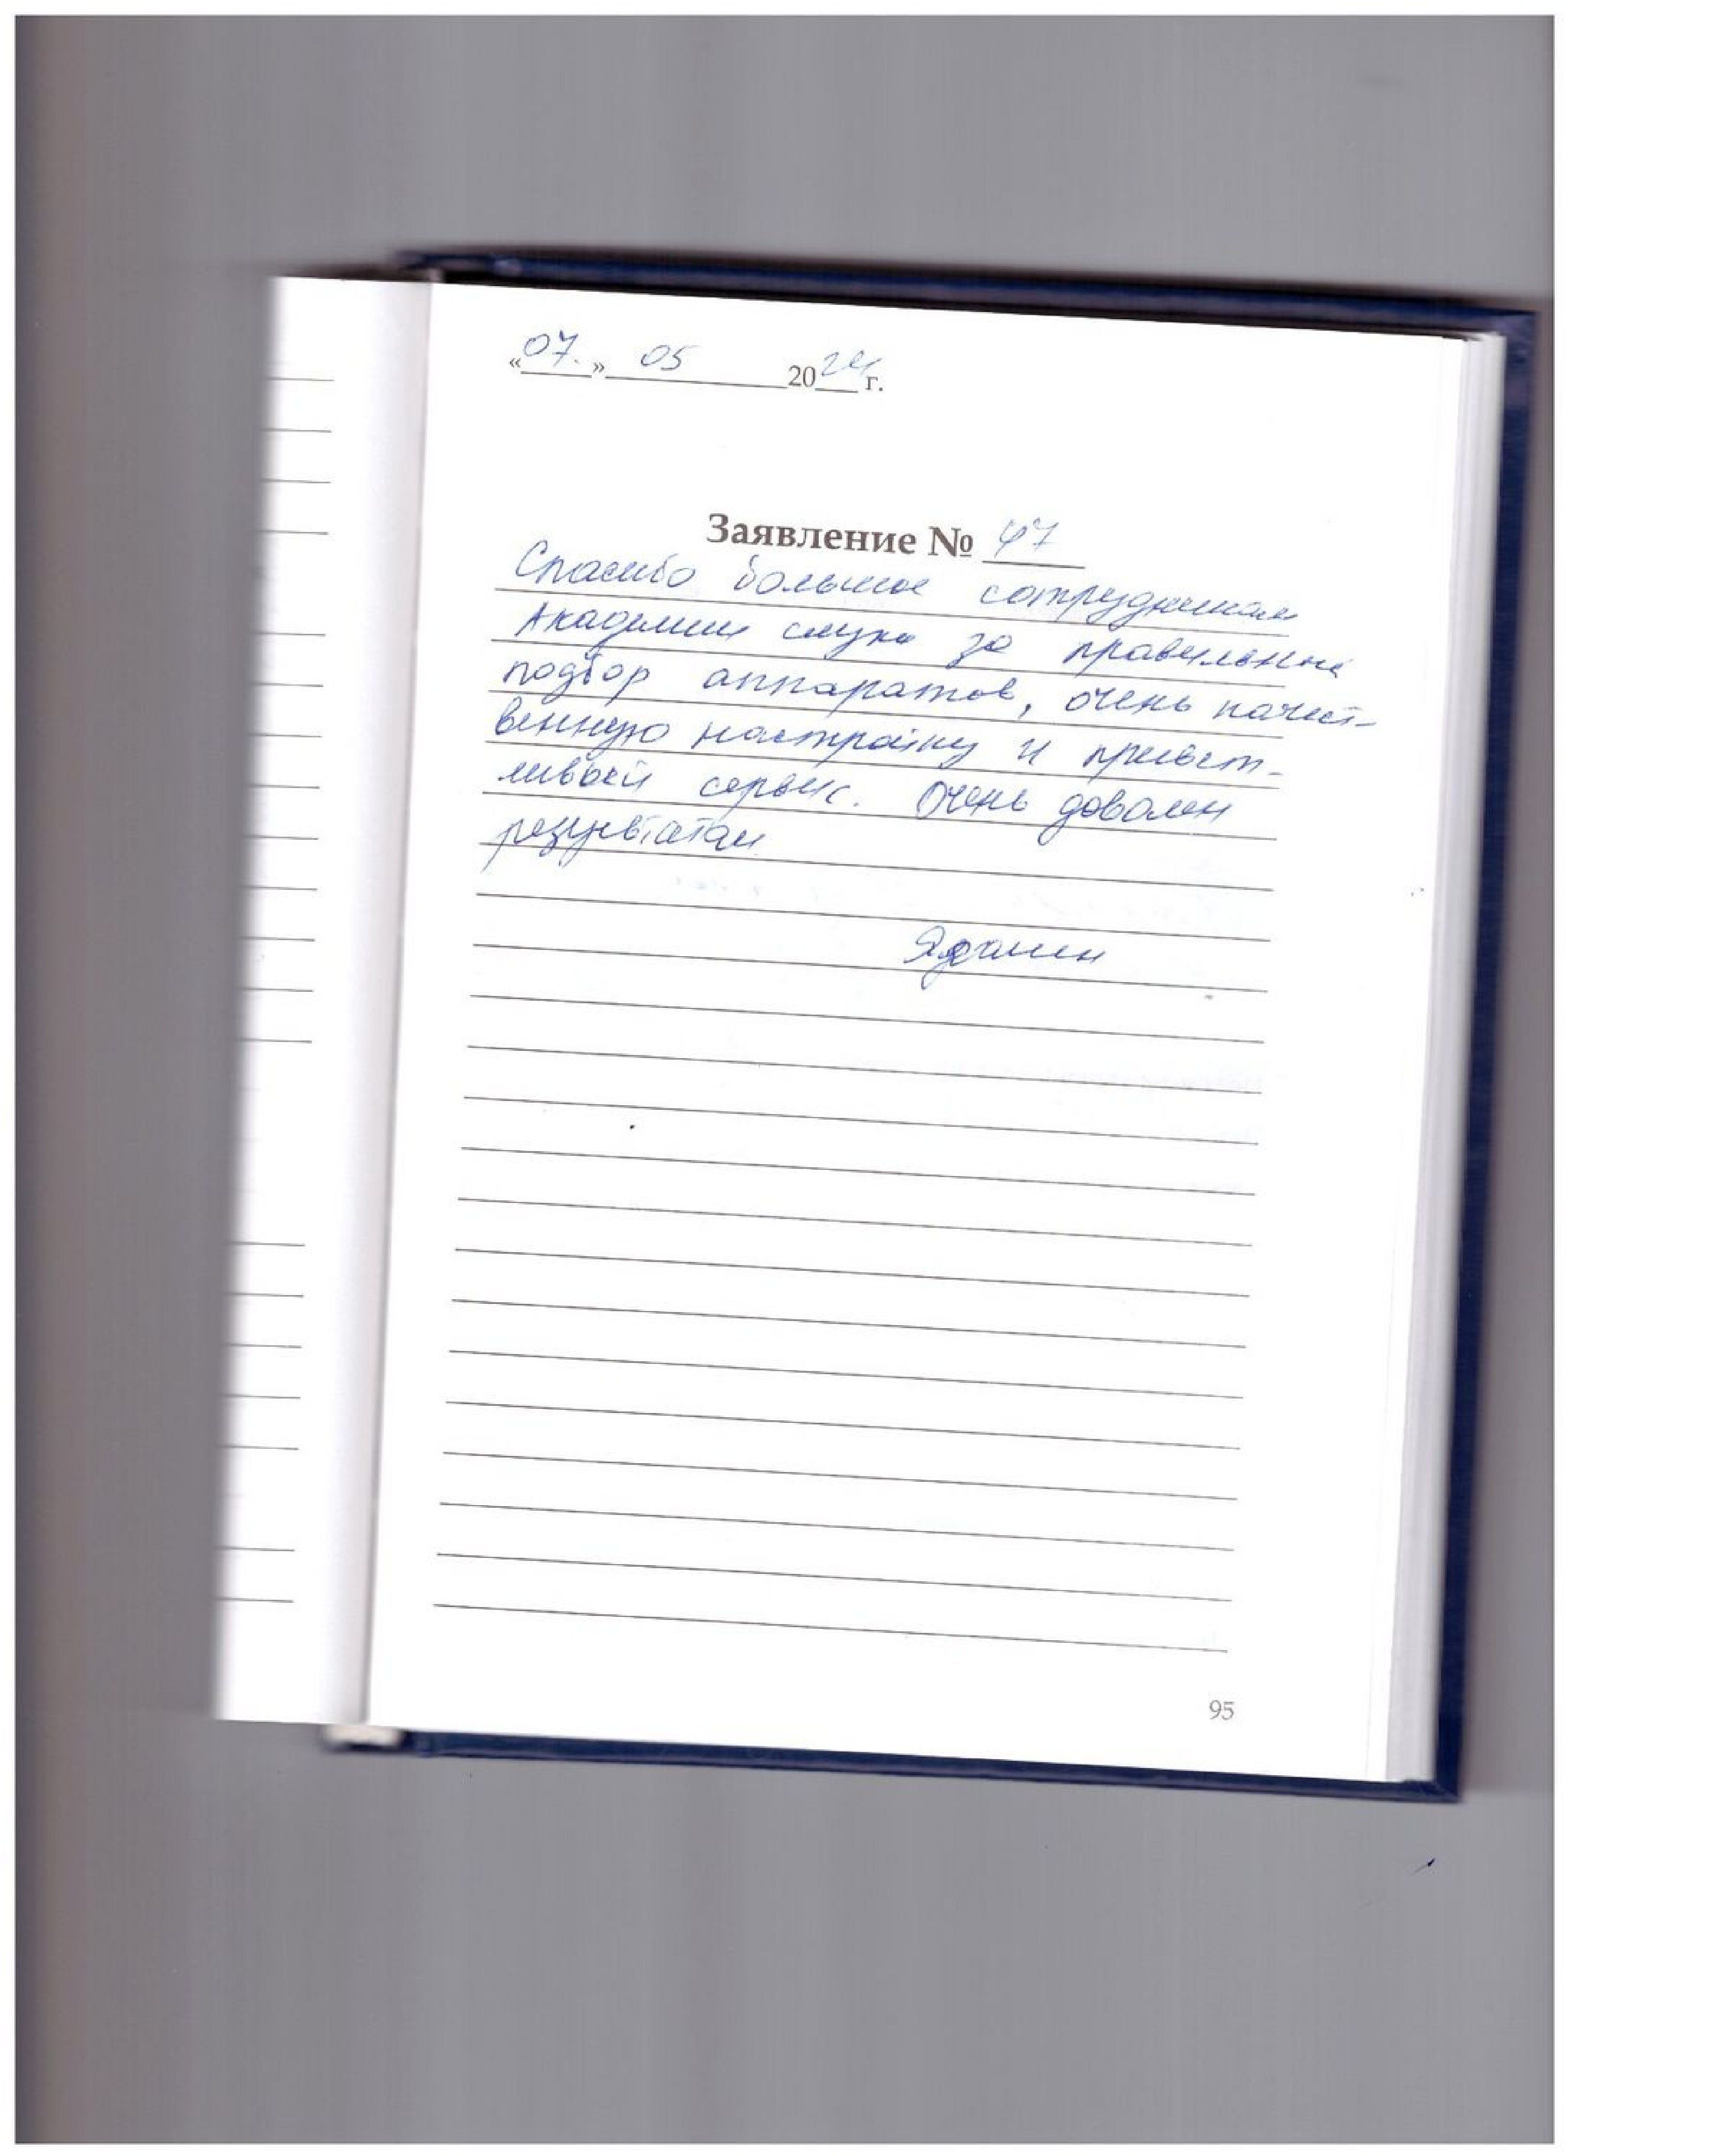 «07.» 05 2024 г.
Заявление № 47
Спасибо большое сотрудникам
Академии слуха за правильный
подбор аппаратов, очень качест-
венную настройку и привет-
ливый сервис. Очень доволен
результатам
95